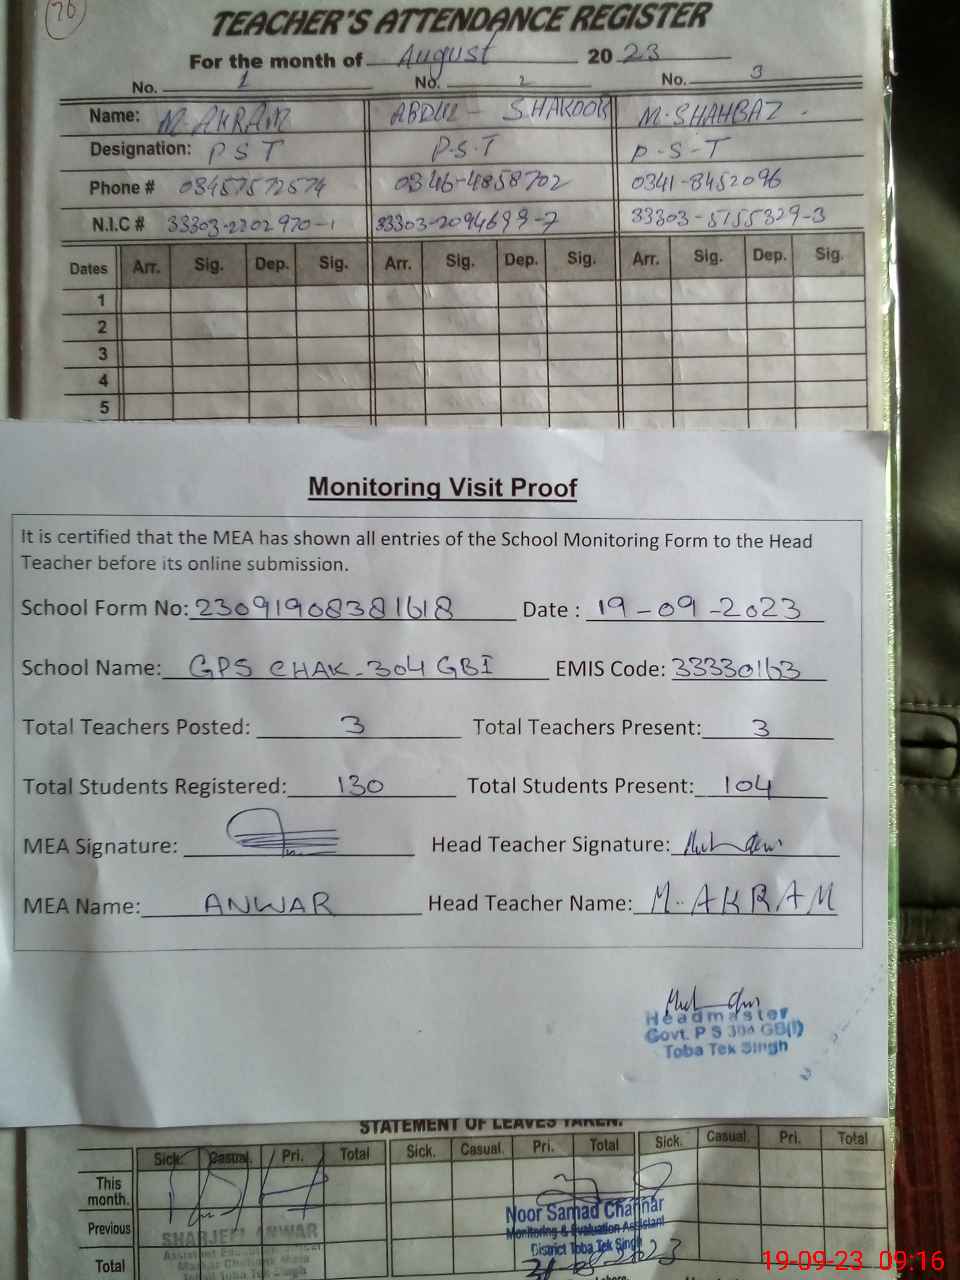 26
TEACHER'S ATTENDANCE REGISTER
For the month of August 2023
No. 1 No. 2 No. 3
Name: M. AKRAM ABDUL - SHAKOOR M. SHAHBAZ.
Designation: P S T P.S.T P-S-T
Phone # 03457572574 0346-4858702 0341-8452096
N.I.C # 33303-2202970-1 33303-2094699-7 33303-5155329-3
Dates Arr. Sig. Dep. Sig. Arr. Sig. Dep. Sig. Arr. Sig. Dep. Sig.
1
2
3
4
5
Monitoring Visit Proof
It is certified that the MEA has shown all entries of the School Monitoring Form to the Head
Teacher before its online submission.
School Form No: 23091908381618 Date : 19-09-2023
School Name: GPS CHAK-304 GBI EMIS Code: 33330163
Total Teachers Posted: 3 Total Teachers Present: 3
Total Students Registered: 130 Total Students Present: 104
MEA Signature: Head Teacher Signature:
MEA Name: ANWAR Head Teacher Name: M. AKRAM
Headmaster
Govt. P S 304 GB(I)
Toba Tek Singh
STATEMENT OF LEAVES TAKEN.
Sick. Casual. Pri. Total Sick. Casual. Pri. Total Sick. Casual. Pri. Total
This
month.
Previous
Total
SHARJEEL ANWAR
Noor Samad Channar
Monitoring & Evaluation Assistant
District Toba Tek Singh
19-09-23 09:16